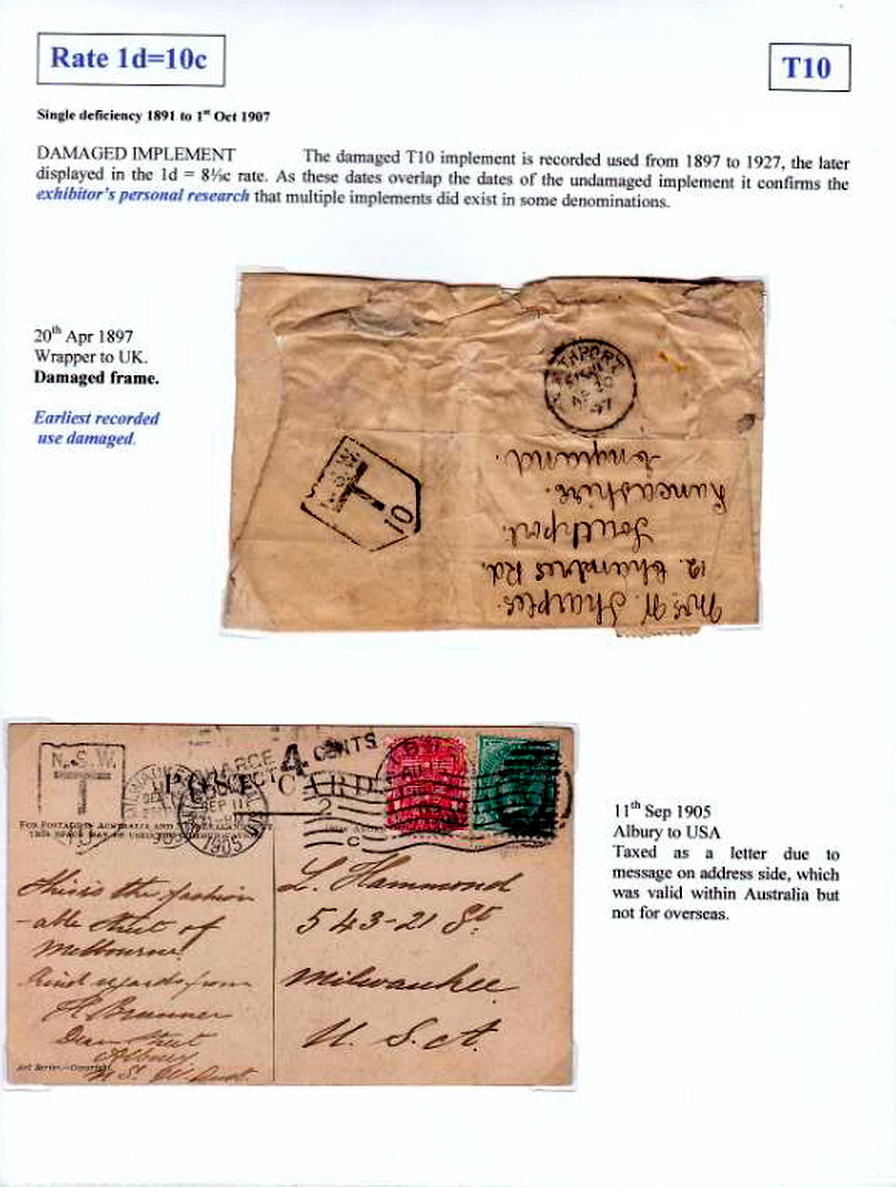 Rate 1d=10c
T10
Single deficiency 1891 to 1st Oct 1907
DAMAGED IMPLEMENT The damaged T10 implement is recorded used from 1897 to 1927, the later
displayed in the 1d = 8⅓c rate. As these dates overlap the dates of the undamaged implement it confirms the
exhibitor's personal research that multiple implements did exist in some denominations.
20th Apr 1897
Wrapper to UK.
Damaged frame.
Earliest recorded
use damaged.
97
N.S.W.
T
10
Mrs. W. Sharples.
12. Chambres Rd.
Southport.
Lancashire.
England.
N.S.W.
T
10
4 CENTS
POST CARD
SEP 11
1905
2
C
This is the fashion
-able street of
Melbourne
Kind regards from
H Brunner
Dean Street
Albury
N. S. W. Aust.
Art Series.—Copyright
L. Hammond
543-21 St.
Milwaukee
U. S. A.
11th Sep 1905
Albury to USA
Taxed as a letter due to
message on address side, which
was valid within Australia but
not for overseas.